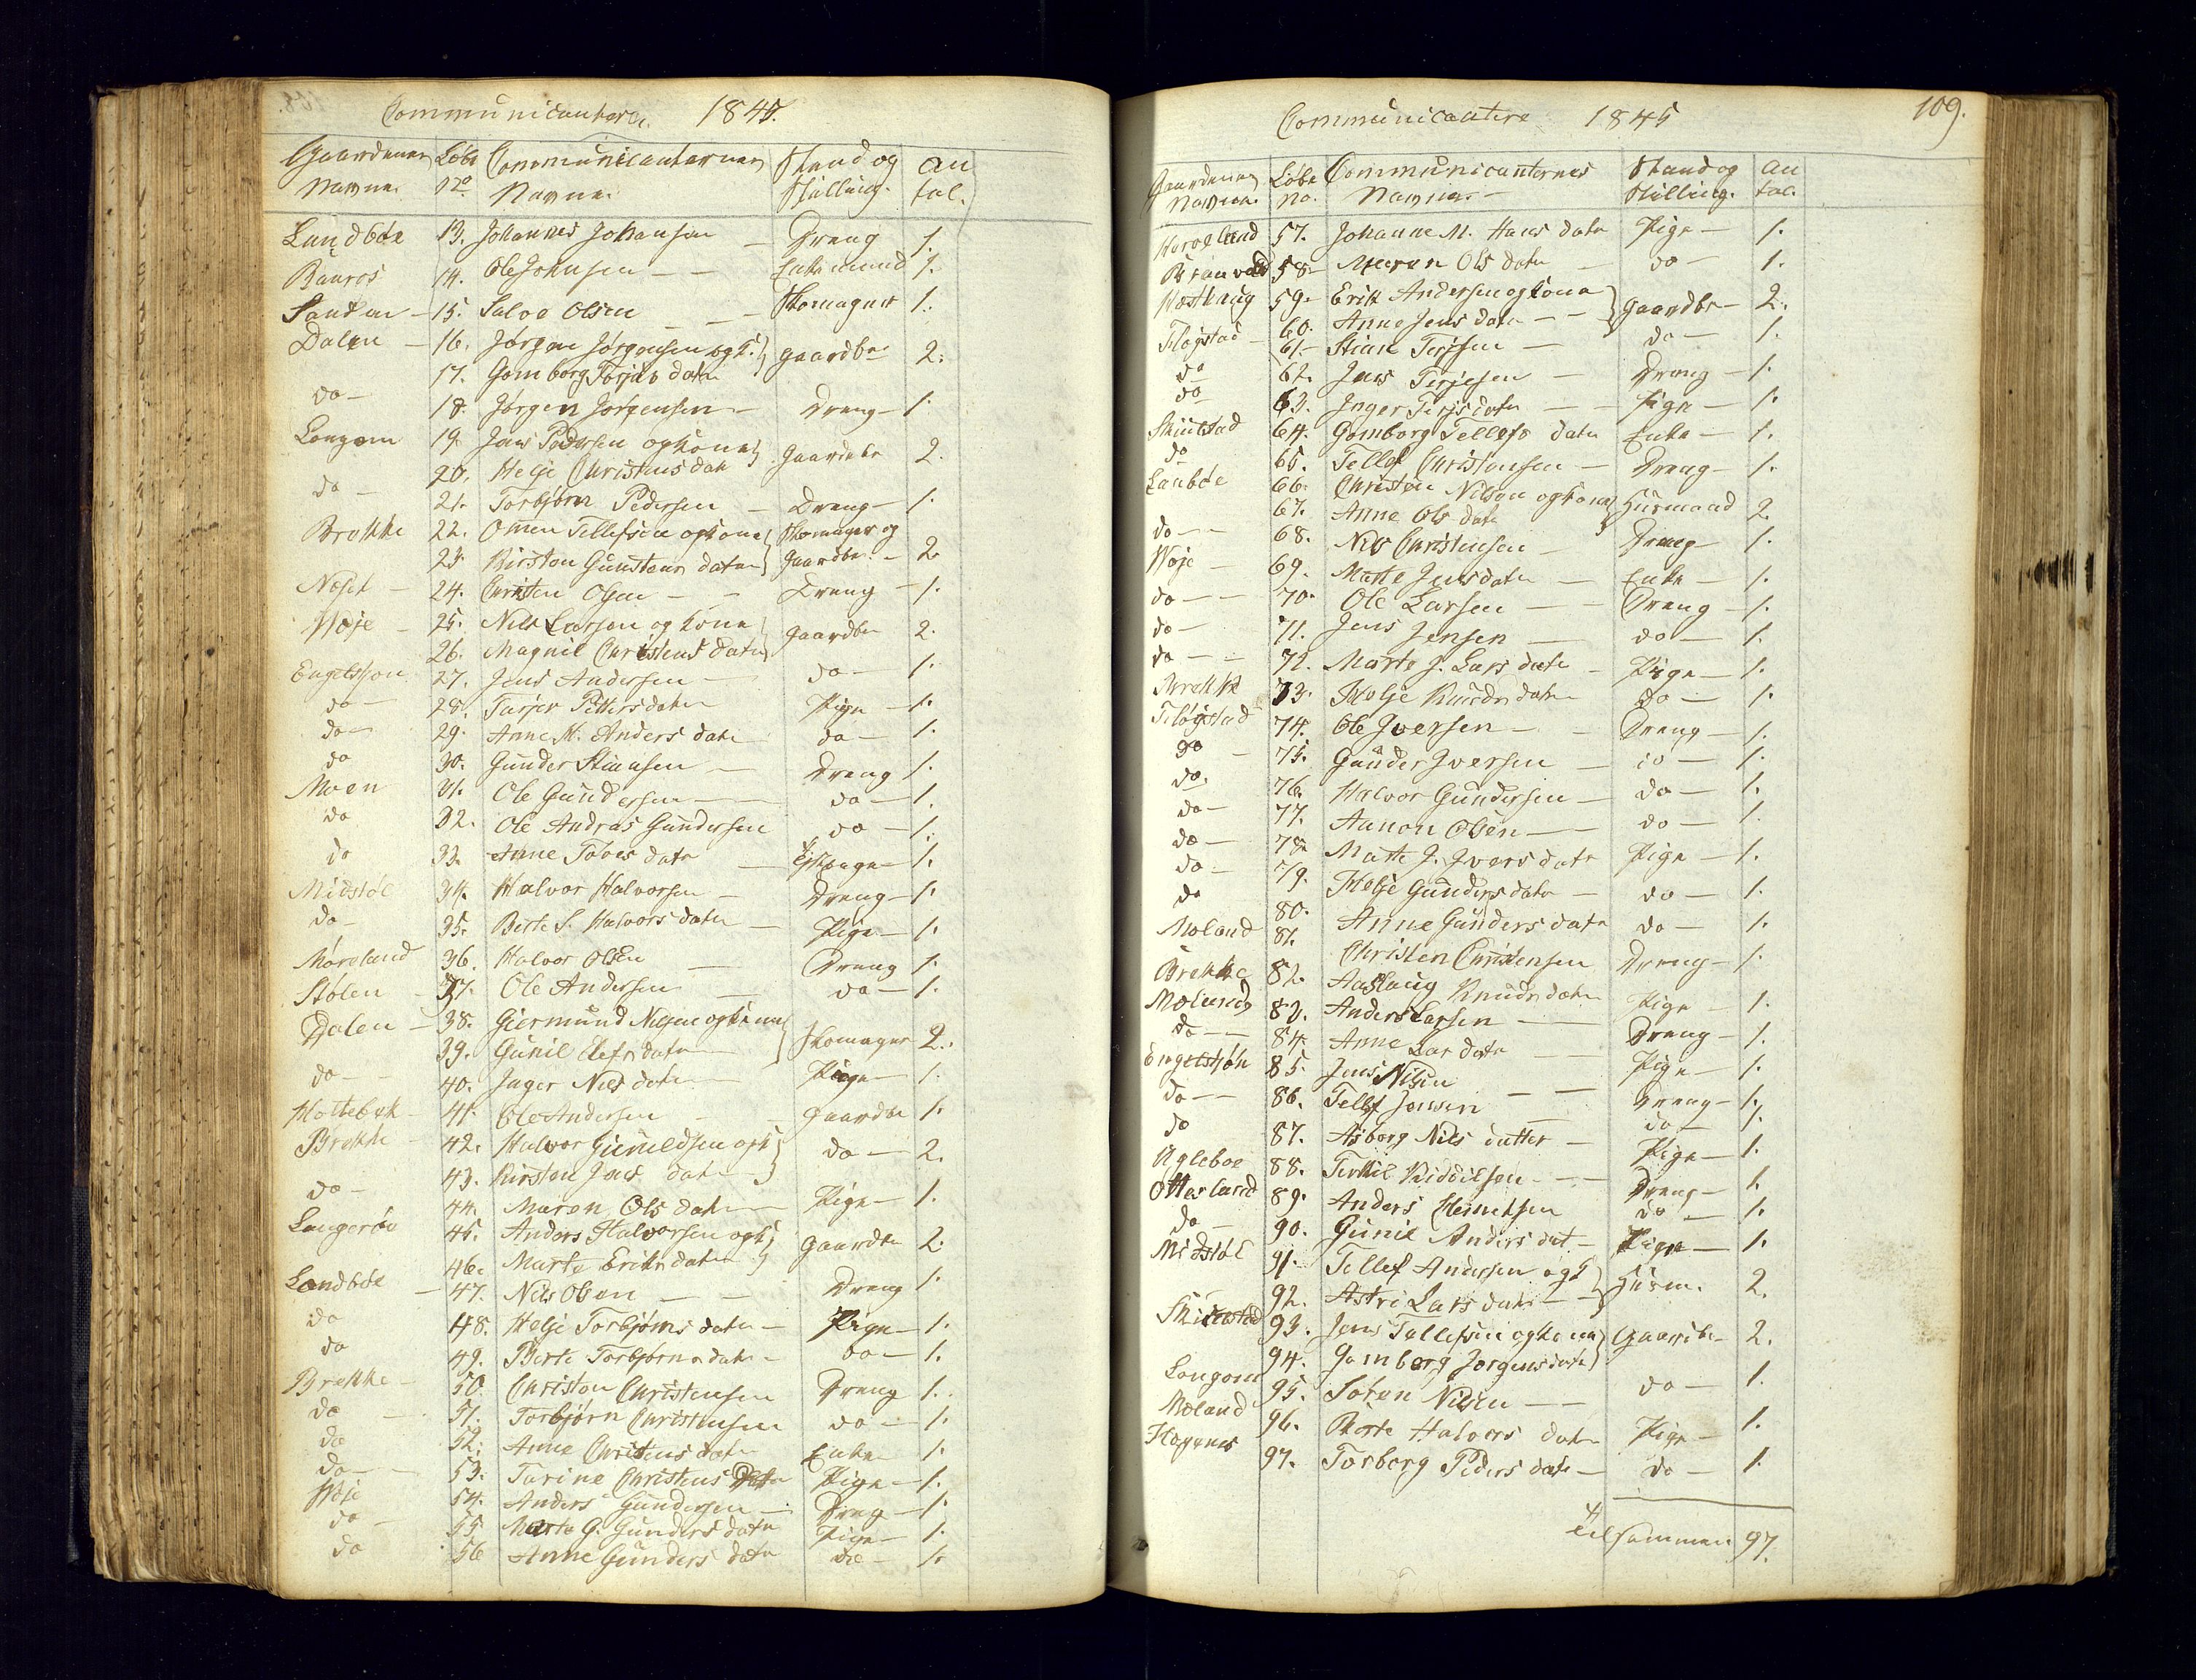 Communicantere 1845.
Gaardenes Løbe Communicanternes Stand og An
Navne. no Navne. Stilling. tal.
Landbøe 13. Johannes Johansen Dreng 1.
Bauros 14. Ole Johnsen Enkemand 1.
Sanden 15. Salve Olsen Skomager 1.
Dalen 16. Jørgen Jørgensen og k. gaardbr 2.
17. Gomborg Torjus datr
do 18. Jørgen Jørgensen Dreng 1.
Longom 19. Jens Pedersen og kone Gaardbr 2.
20. Helje Christens datr
do 21. Torbjørn Pedersen Dreng 1.
Brekke 22. Omen Tellefsen og kone Skomager og
23. Kirsten Gunsteens datter Gaardbr. 2
Neset 24. Christen Olsen Dreng 1.
Woje 25. Nils Larsen og kone gaardbr 2.
26. Magnil Christens datr
Engelstjøn 27. Jens Andersen do 1.
do 28. Tarjer Petters datr Pige 1.
do 29. Anne M. Anders datr do 1.
do 30. Gunder Stiansen Dreng 1.
Moen 31. Ole Gundersen do 1.
do 32. Ole Andras Gundersen do 1.
do 33. Anne Toves datr 1.
Midstøl 34. Halvor Halvorsen Dreng 1.
do 35. Berte S. Halvors datr Pige 1.
Møreland 36. Halvor Olsen Dreng 1.
Stølen 37. Ole Andersen do 1.
Dalen 38. Giermund Nilsen og kone Skomager 2.
39. Gunil Olefs datr
do 40. Inger Nils datr Pige 1.
41. Ole Andersen gaardbr 1.
Brekke 42. Halvor Gunildsen og k do 2.
43. Kirsten Jens datr
do 44. Maren Ols datr Pige 1.
45. Anders Halvorsen og k gaardbr 2.
46. Marte Eriks datr
Landbøe 47. Nils Olsen Dreng 1.
do 48. Helje Torbjørns datr Pige 1.
do 49. Berte Torbjørns datr do 1.
Brekke 50. Christen Christensen Dreng 1.
do 51. Torbjørn Christensen do 1.
do 52. Anne Christens datr Enke 1.
do 53. Tarine Christens datr Pige 1.
Woje 54. Anders Gundersen Dreng 1.
do 55. Marte G. Gunders datr Pige 1.
do 56 Anne Gunders datr do 1.
Communicantere 1845 109.
Gaardenes Løbe Communicanternes Stand og An
Navne. no. Navne Stilling. tal.
57. Johanne M. Hans datr Pige 1.
58 Maren Ols datr do 1.
59. Erik Andersen og kone gaardbr 2.
60. Anne Jens datr
Fløgstad 61. Stian Terjesen do 1.
do 62. Jens Terjesen Dreng 1.
do 63. Inger Terjes datr Pige 1.
64. Gomborg Tellefs datr Enke 1.
do 65. Tellef Christensen Dreng 1.
Lanbøe 66. Christen Nilsen og kone Husmand 2.
67. Anne Ols datr
do 68. Nils Christensen Dreng 1.
Woje 69. Marte Jens datr Enke 1.
do 70. Ole Larsen Dreng 1.
do 71. Jens Jensen do 1.
do 72. Marte J. Lars datr Pige 1.
Brekke 73. Helje Knuds datr do 1.
Fløgstad 74. Ole Iversen Dreng 1.
do 75. Gunder Iversen do 1.
do. 76. Halvor Gundersen do 1.
do 77. Aanon Olsen do 1.
do 78. Marte J. Ivers datr Pige 1.
do 79. Helje Gunders datr do 1.
do 80. Anne Gunders datr do 1.
Moland 81. Christen Christensen Dreng 1.
Brekke 82. Aaslaug Knuds datr Pige 1.
Moland 83. Anders Larsen Dreng 1.
do 84. Anne Lars datr Pige 1.
Engelstjøn 85. Jens Nilsen Dreng 1.
do 86. Tellef Jensen do 1.
do 87. Asborg Nils datter Pige 1.
Ugleboe 88. Terkil Kiddilsen Dreng 1.
Otterland 89. Anders Henriksen do 1.
do 90. Gunil Anders dat Pige 1.
Midstøl 91. Tellef Andersen og k Husm. 2.
92. Astri Lars datr
93. Jens Tellefsen og kone Gaardbr 2.
94. Gomborg Jørgens datr
Longom 95. Søren Nilsen do 1.
Moland 96. Berte Halvors datr Pige 1.
97. Torborg Peders datr do 1.
Tilsammen 97.